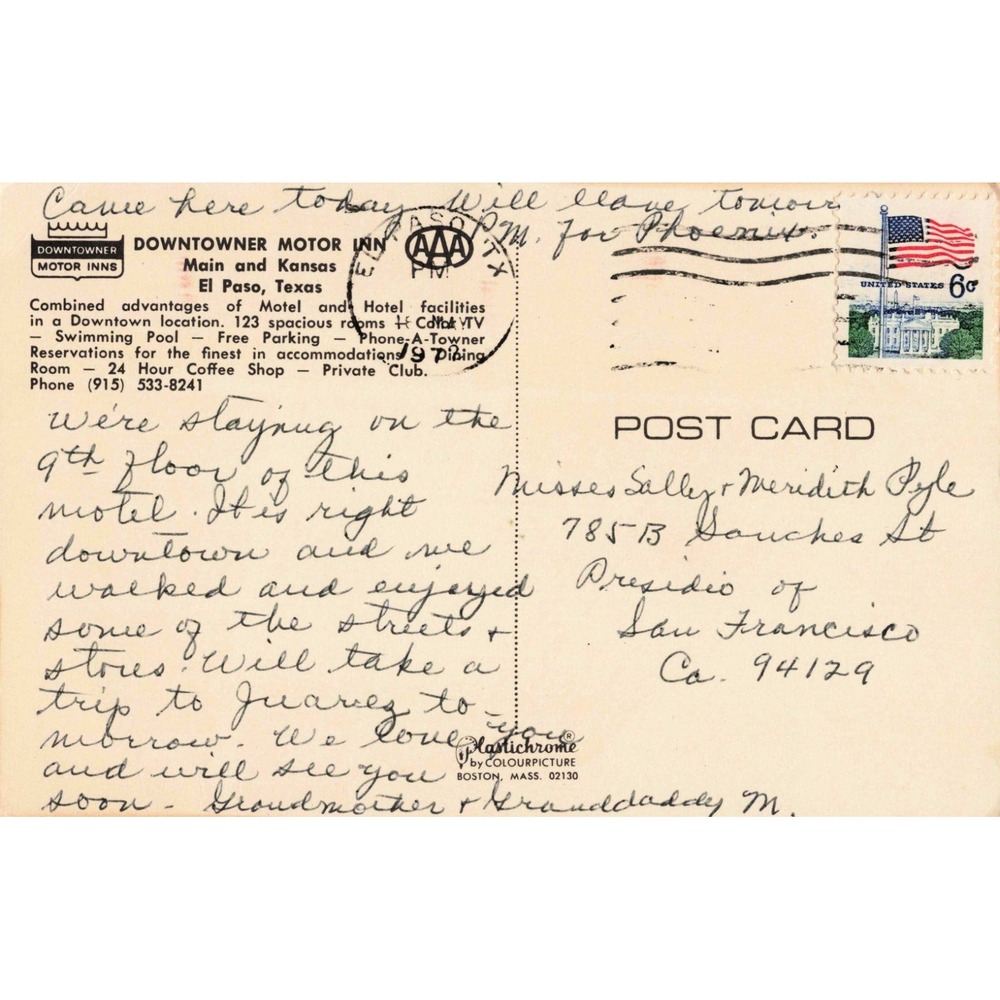 Came here today. Will leave tomorr
P.M. for Phoenix.
DOWNTOWNER
MOTOR INNS
DOWNTOWNER MOTOR INN
Main and Kansas
El Paso, Texas
Combined advantages of Motel and Hotel facilities
in a Downtown location. 123 spacious rooms — Color TV
— Swimming Pool — Free Parking — Phone-A-Towner
Reservations for the finest in accommodations — Dining
Room — 24 Hour Coffee Shop — Private Club.
Phone (915) 533-8241
AAA
EL PASO TX
PM
MAY
UNITED STATES 6c
We're staying on the
9th floor of this
motel. It is right
downtown and we
walked and enjoyed
some of the streets +
stores. Will take a
trip to Juarez to-
morrow. We love you
and will see you
soon - Grandmother + Granddaddy M.
POST CARD
Misses Sally + Meridith Pyle
785B Sanches St
Presidio of
San Francisco
Ca. 94129
Plastichrome®
by COLOURPICTURE
BOSTON, MASS. 02130